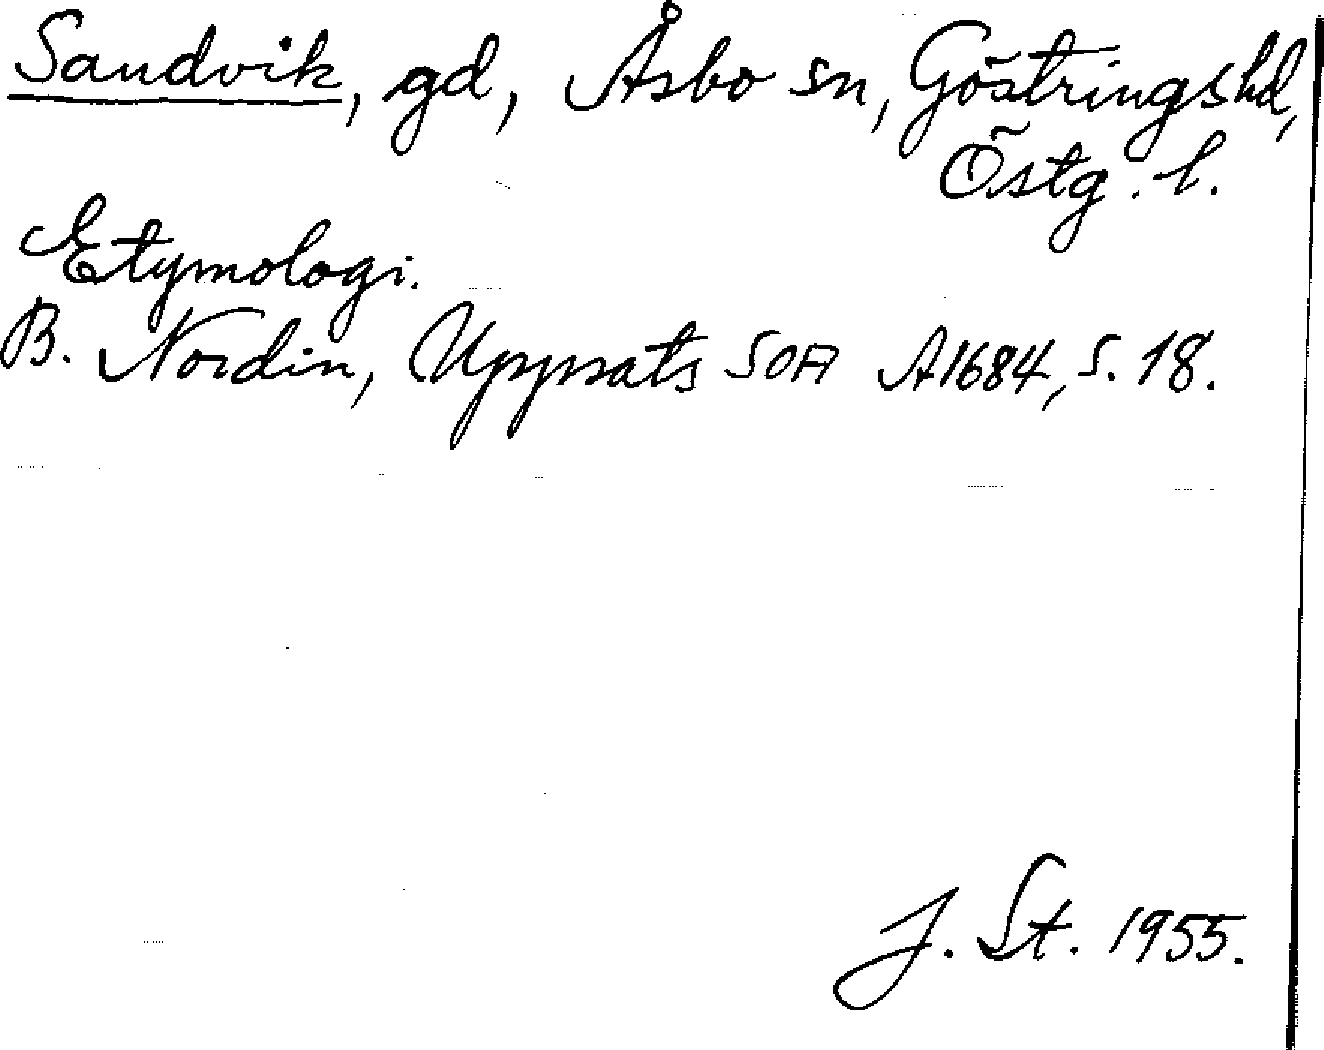 Sandvik, gd, Åsbo sn, Göstringshd,
Östg. l.
Etymologi.
B. Nordin, Uppsats SOA A1684, s. 18.
J. St. 1955.